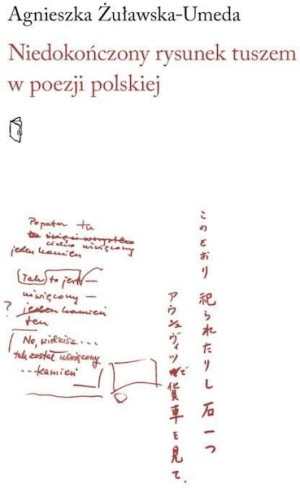 Agnieszka Żuławska-Umeda
Niedokończony rysunek tuszem
w poezji polskiej
Popatrz tu
cicho uświęcony
jeden kamień
(Tak) to jest
uświęcony —
? jeden kamień
ten
No, widzisz...
tak został uświęcony
...kamień
このとおり 祀られたりし 石一つ
アウシュヴィツにて 貨車を見て、